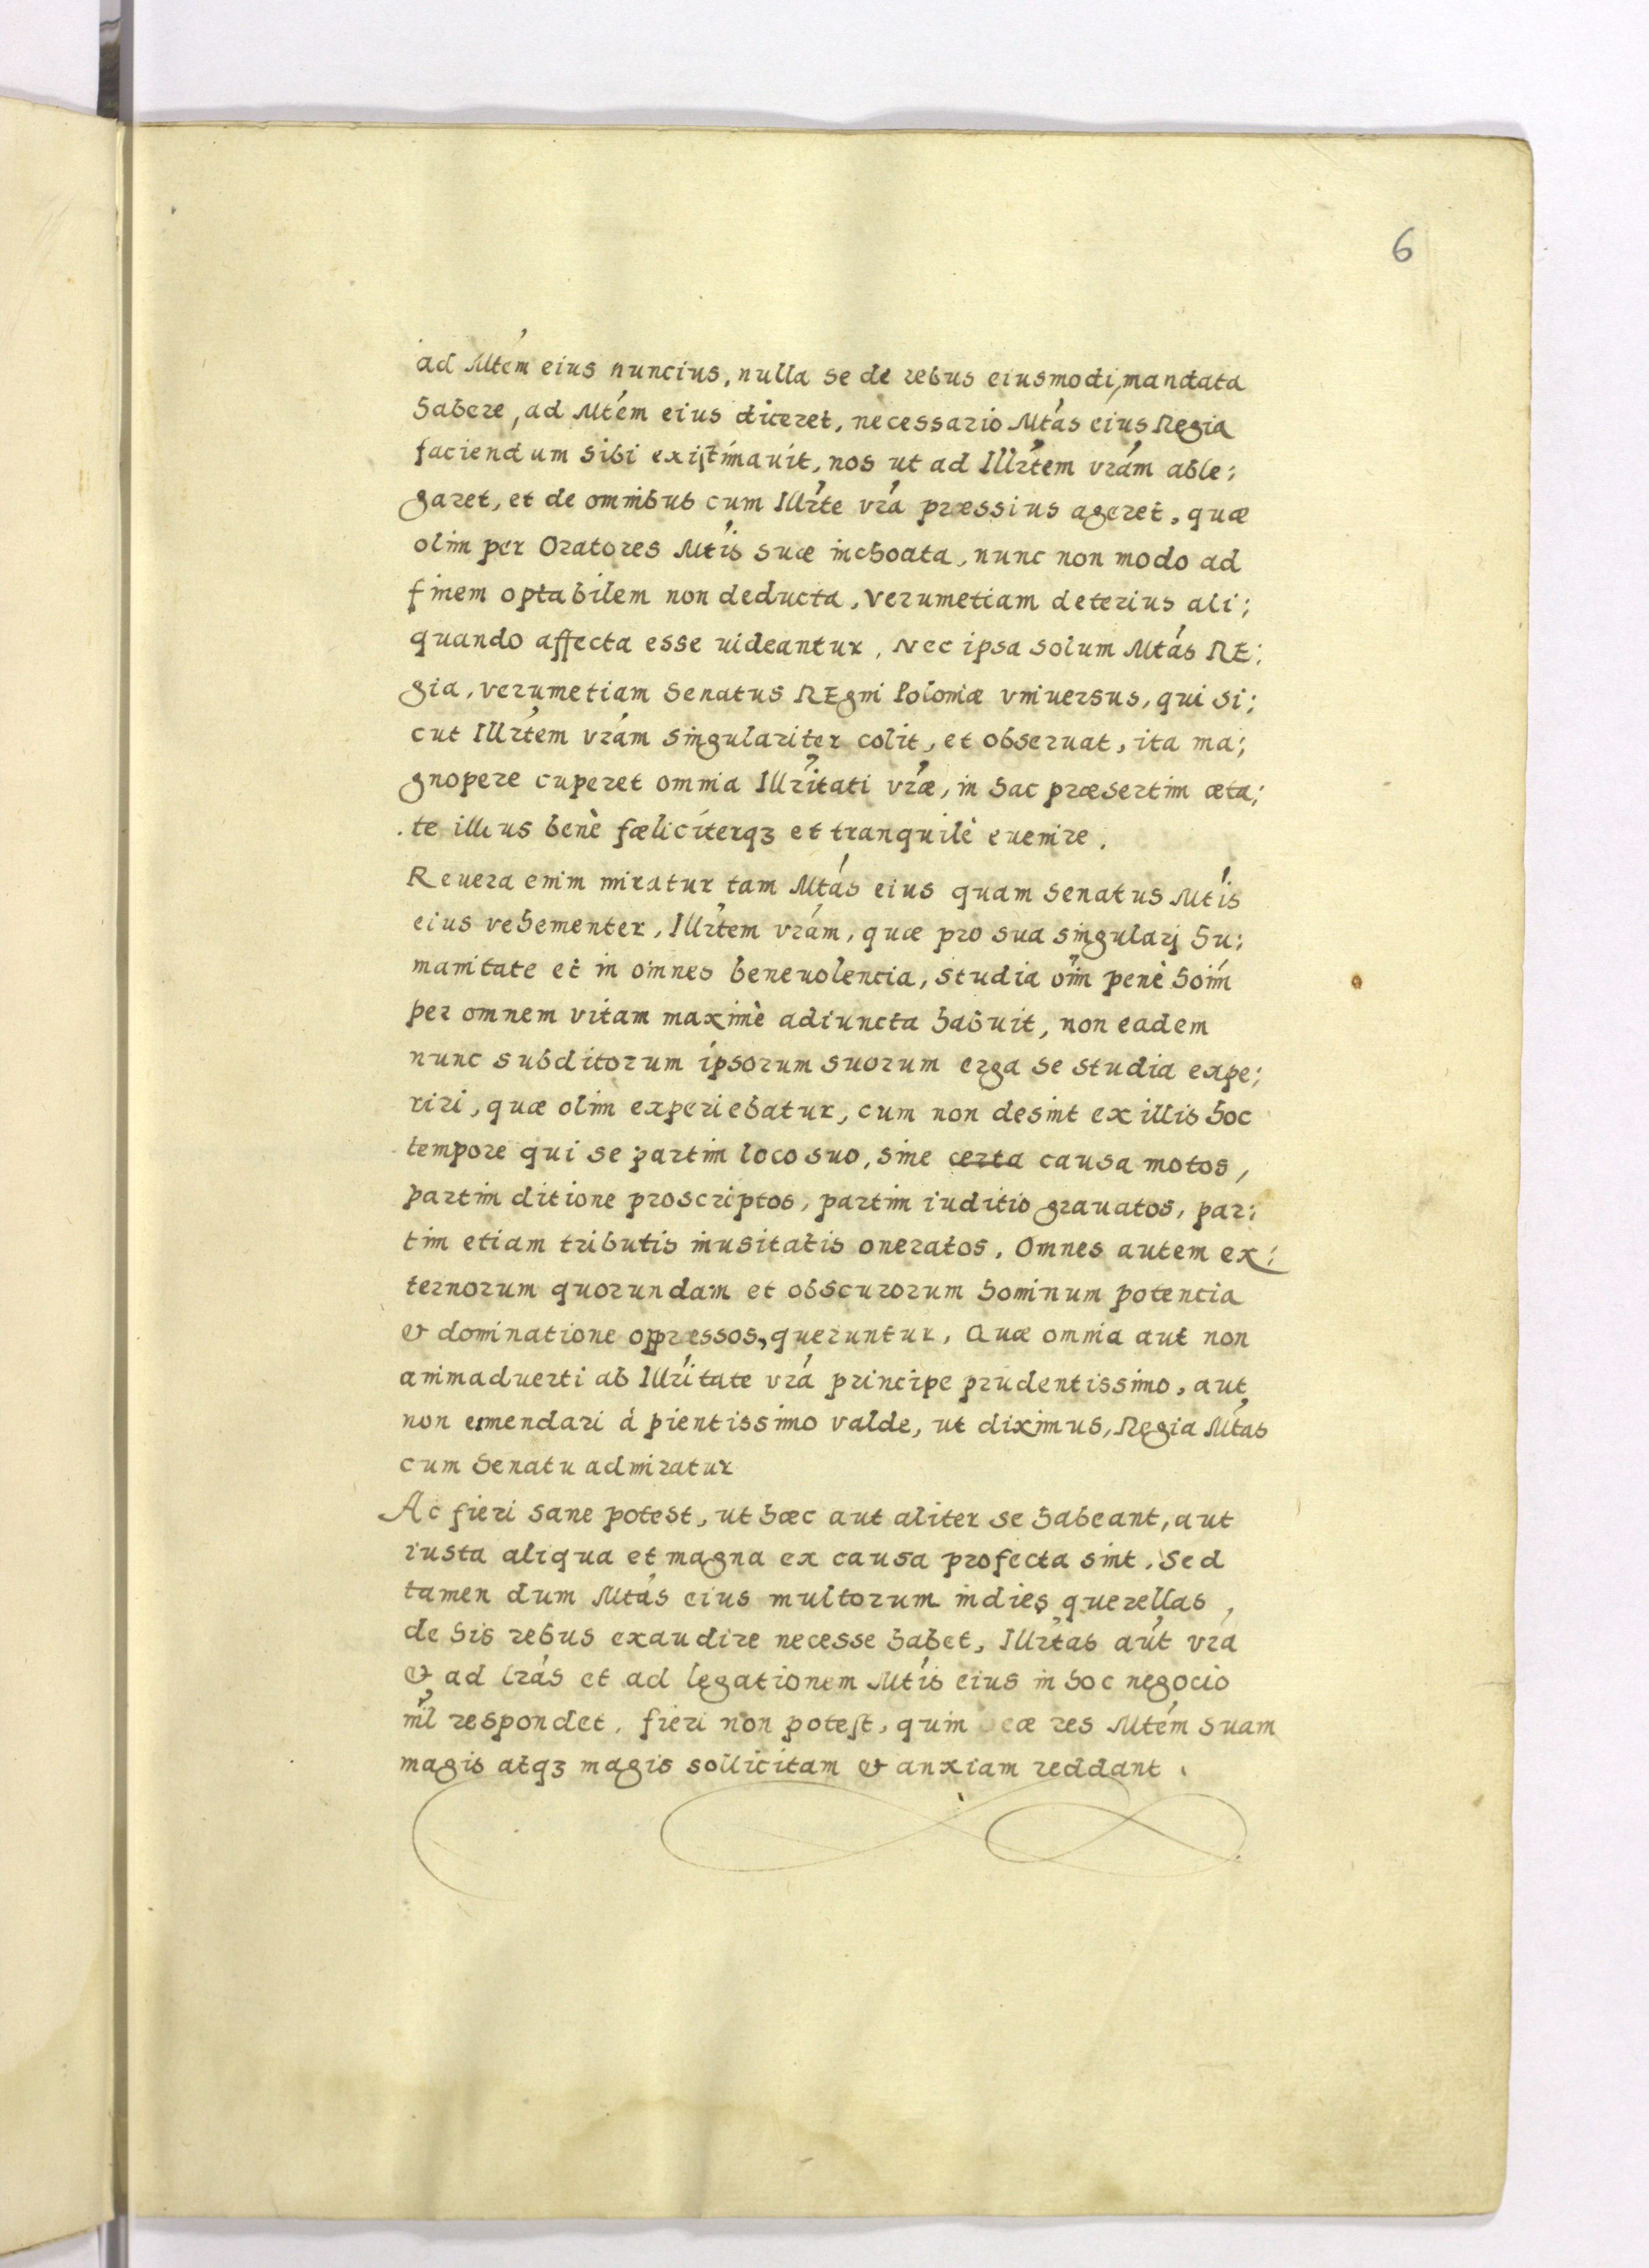 6
ad Mtém eius nuncius, nulla se de rebus eiusmodi, mandata
habere, ad Mtém eius diceret, necessario Mtás eius Regia
faciendum sibi existimauit, nos ut ad Illrtém vrám able;
garet, et de omnibus cum Illrté vrá præssius ageret, quæ
olim per Oratores Mtís suæ inchoata, nunc non modo ad
finem optabilem non deducta, verumetiam deterius ali;
quando affecta esse uideantur, Nec ipsa solum Mtás RE;
gia, verumetiam Senatus REgni Poloniæ vniuersus, qui si;
cut Illrtém vrám singulariter colit, et obseruat, ita ma;
gnopere cuperet omnia Illrítati vræ, in hac præsertim æta;
te illius benè fæliciterqꝫ et tranquilè euenire.
Reuera enim miratur tam Mtás eius quam Senatus Mtís
eius vehementer, Illrtém vrám, quæ pro sua singularj hu;
manitate et in omnes beneuolentia, studia oím penè hoím
per omnem vitam maximè adiuncta habuit, non eadem
nunc subditorum ipsorum suorum erga se studia expe;
riri, quæ olim experiebatur, cum non desint ex illis hoc
tempore qui se partim loco suo, sine certa causa motos,
partim ditione proscriptos, partim iuditio grauatos, par;
tim etiam tributis inusitatis oneratos, Omnes autem ex;
ternorum quorundam et obscurorum hominum potentia
& dominatione oppræssos, queruntur, Quæ omnia aut non
animaduerti ab Illrítate vrá principe prudentissimo, aut
non emendari á pientissimo valde, ut diximus, Regia Mtás
cum Senatu admiratur
Ac fieri sane potest, ut hæc aut aliter se habeant, aut
iusta aliqua et magna ex causa profecta sint, Sed
tamen dum Mtás eius multorum indies querellas,
de his rebus exaudire necesse habet, Illrtás aút vrá
& ad lrás et ad legationem Mtís eius in hoc negocio
níl respondet, fieri non potest, quin eæ res Mtém suam
magis atqꝫ magis sollicitam & anxiam reddant.